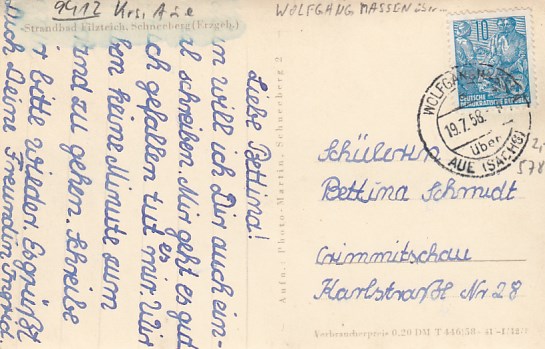 9412 Krs. Aue
WOLFGANG MASSEN über
Strandbad Filzteich, Schneeberg (Erzgeb.)
Liebe Bettina!
n will ich Dir auch ein-
al schreiben. Mir geht es gut
ch gefallen tut es mir. Wir
ben keine Minute zum
and zu gehen. Schreibe
r bitte wieder. Es grüßt
Dich Deine Freundin Ingrid.
Aufn.: Photo-Martin, Schneeberg 2
10
DEUTSCHE
DEMOKRATISCHE REPUBLIK
19.7.58.
über
AUE (SACHS)
2,
578
Schülerin
Bettina Schmidt
Crimmitschau
Karlstraße Nr 28
Verbraucherpreis 0,20 DM T 446/58